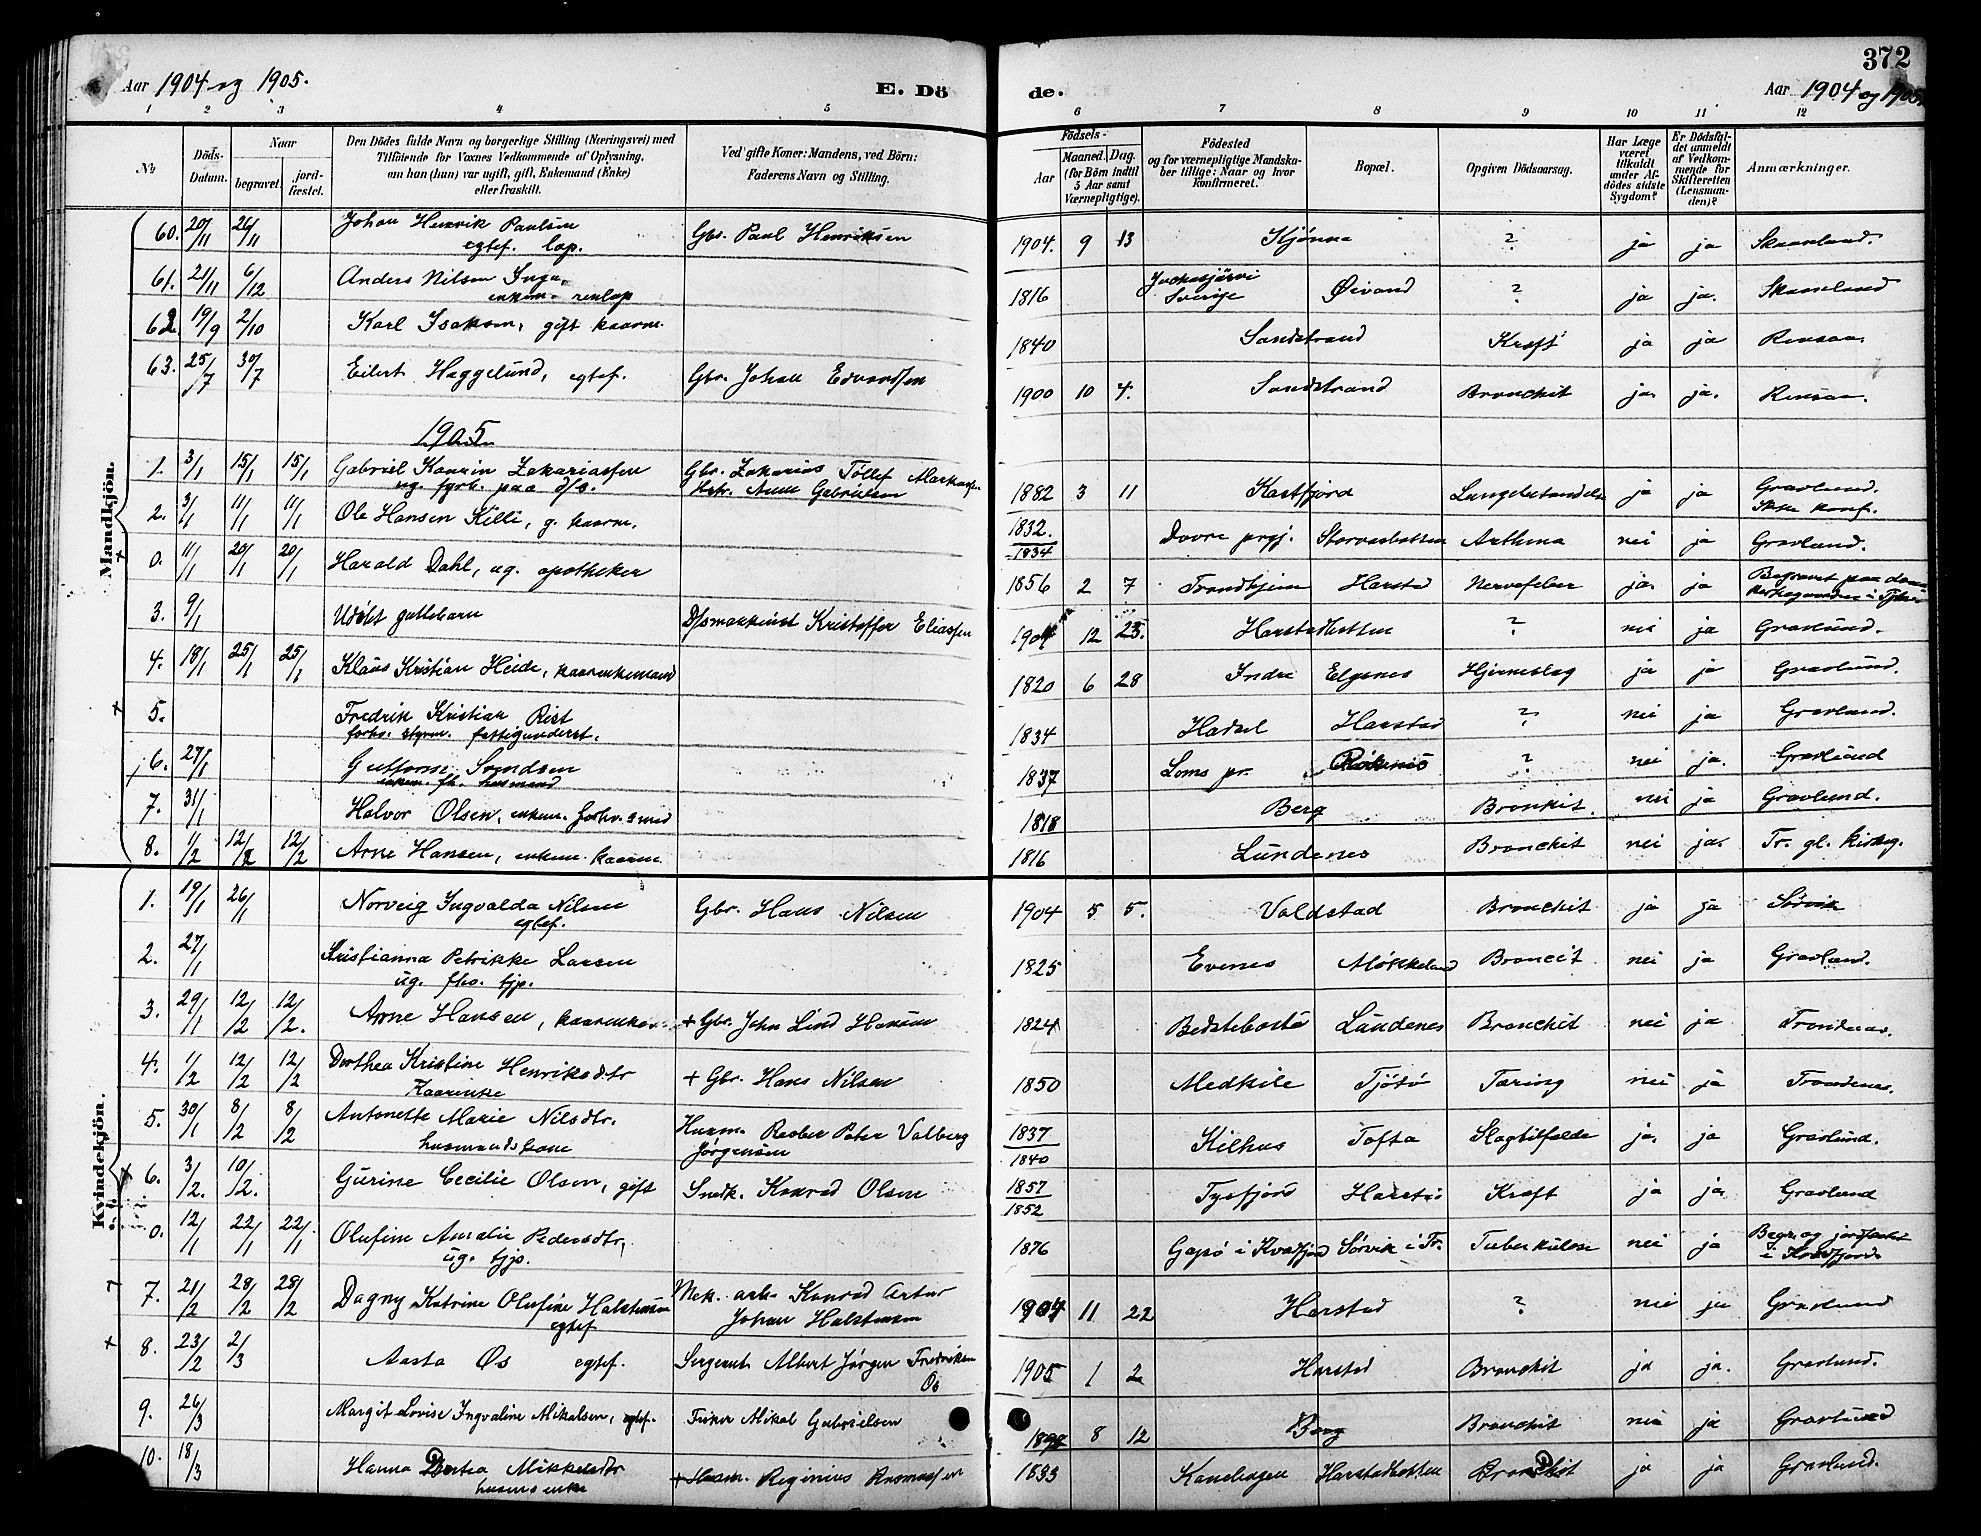 372
Aar 1904 og 1905.
E. Dö
de.
Aar 1904 og 1905.
1 2 3 4 5 6 7 8 9 10 11 12
No
Döds-Datum.
Naar
begravet.
jordfæstet.
Den Dödes fulde Navn og borgerlige Stilling (Næringsvei) med
Tilföiende for Voxnes Vedkommende af Oplysning,
om han (hun) var ugift, gift, Enkemand (Enke)
eller fraskilt.
Ved gifte Koner: Mandens, ved Börn:
Faderens Navn og Stilling.
Födsels-
Aar
Maaned. Dag.
(for Börn indtil
5 Aar samt
Værnepligtige).
Födested
og for værnepligtige Mandska-
ber tillige: Naar og hvor
konfirmeret.
Bopæl.
Opgiven Dödsaarsag.
Har Læge
været
tilkaldt
under Af-
dödes sidste
Sygdom?
Er Dödsfal-
det anmeldt
af Vedkom-
mende for
Skifteretten
(Lensman-
den)?
Anmærkninger.
Mandkjön.
60. 20/11 26/11 Johan Henrik Paulsen egtef. lap. Gbr. Paul Henriksen 1904. 9 13 Kjønna ? ja ja Skaanland.
61. 21/11 6/12 Anders Nilsen Inga, enkem. renlap 1816 Juckasjärvi Sverige Øivand ? ja ja. Skaanland
62. 19/9 2/10 Karl Isaksen, gift kaarm. 1840 Sandstrand Kræft ja ja Rensaa.
63. 25/7 30/7 Eilert Haggelund, egtef. Gbr. Johan Edvardsen 1900 10 4. Sandstrand Bronchit ja. ja. Rensaa.
1905
1. 3/1 15/1 15/1 Gabriel Kaarin Zakariassen ug. fyrb. paa d/s. Gbr. Zakarias Tollef Hstr. Anne Gabrielsen 1882 3 11 Kastfjord Lungebetændelse ja ja Gravlund. Ikke konf.
2. 3/1 11/1 11/1 Ole Hansen Killi, g. kaarm. 1832. 1834 Dovre prgj. Storvasbotten Asthma nei ja Gravlund.
0. 11/1 20/1 20/1 Harald Dahl, ug. apotheker 1856 2 7 Trondhjem Harstad Nervefeber ja. ja Begravet paa
3. 9/1 Udøbt guttebarn D/smaskinist Kristoffer Eliassen 1904 12 25. Harstadbotten ? nei ja Gravlund.
4. 18/1 25/1 25/1 Klaus Kristian Heide, kaarenkemand 1820 6 28 Indre Elgenes Hjerneslag ja ja Gravlund.
5. Fredrik Kristian Rist forhv. styrm. fattigunderst. 1834 Hadsel Harstad ? nei ja Gravlund.
6. 27/1 Guttorm Svendsen enkem. fh. husmand 1837 Loms pr. ? nei ja. Gravlund
7. 31/1 Halvor Olsen, enkem. forhv. smed 1818 Berg Bronkit. nei ja Gravlund.
8. 1/2 12/2 12/2 Arne Hansen, enkem. kaarm. 1816 Lundenes Bronchit nei ja. Tr. gl. kirkeg.
Kvindekjön.
1. 19/1 26/1 Norveig Ingvalda Nilsen egtef. Gbr. Hans Nilsen 1904 5 5. Voldstad Bronchit ja ja Sørvik
2. 27/1 Kristianna Petrikke Larsen ug. fhv. tjp. 1825 Evenes Møkkeland Broncit nei ja Gravlund.
3. 29/1 12/2 12/2. Arne Hansen, kaarenke + Gbr. John Lind Hansen 1824 Bedstebostø Lundenes Bronchit nei ja Trondenes.
4. 1/2 12/2 12/2 Dorthea Kristine Henriksdtr Kaarenke + Gbr. Hans Nilsen 1850 Medkile Tjøtø Tæring nei ja Trondenes.
5. 30/1 8/2 8/2 Antonette Marie Nilsdtr. husmandskone Husm. Peter Valberg Jørgensen 1837 1840 Kilhus Tofta Slagtilfælde ja. ja Gravlund.
6. 3/2. 10/2. Gurine Cecilie Olsen, gift Snedk. Konrad Olsen 1857 1852 Tysfjord Harstad Kræft ja ja. Gravlund
0. 12/1 22/1 22/1 Olufine Amalie Pedersdtr, ug. tjp. 1876 Gapø i Kvæfjord Sørvik i Tr. Tuberkulose nei ja Begr. og jordfæstet i Kvæfjord
7. 21/2 28/2 28/2 Dagny Katrine Olufine Halstensen egtef Mek. arb. Konrad Artur Johan Halstensen 1904 11 22 Harstad ? nei ja Gravlund
8. 23/2 2/3 Aasta Os egtef. Sergeant Albert Jørgen Fredriksen Os 1905 1 2 Harstad Bronchit ja ja. Gravlund.
9. 26/3 Margit Lovise Ingvaline Mikalsen, egtef. Fisker Mikal Gabrielsen 8 12 Berg Bronchit nei ja Gravlund
10. 18/3 Hanna Dortea Mikkelsdtr husmsenke + Husm. Reginius Rasmussen 1833 Kanebogen Harstadbotten Bronchit ja ja Gravlund.